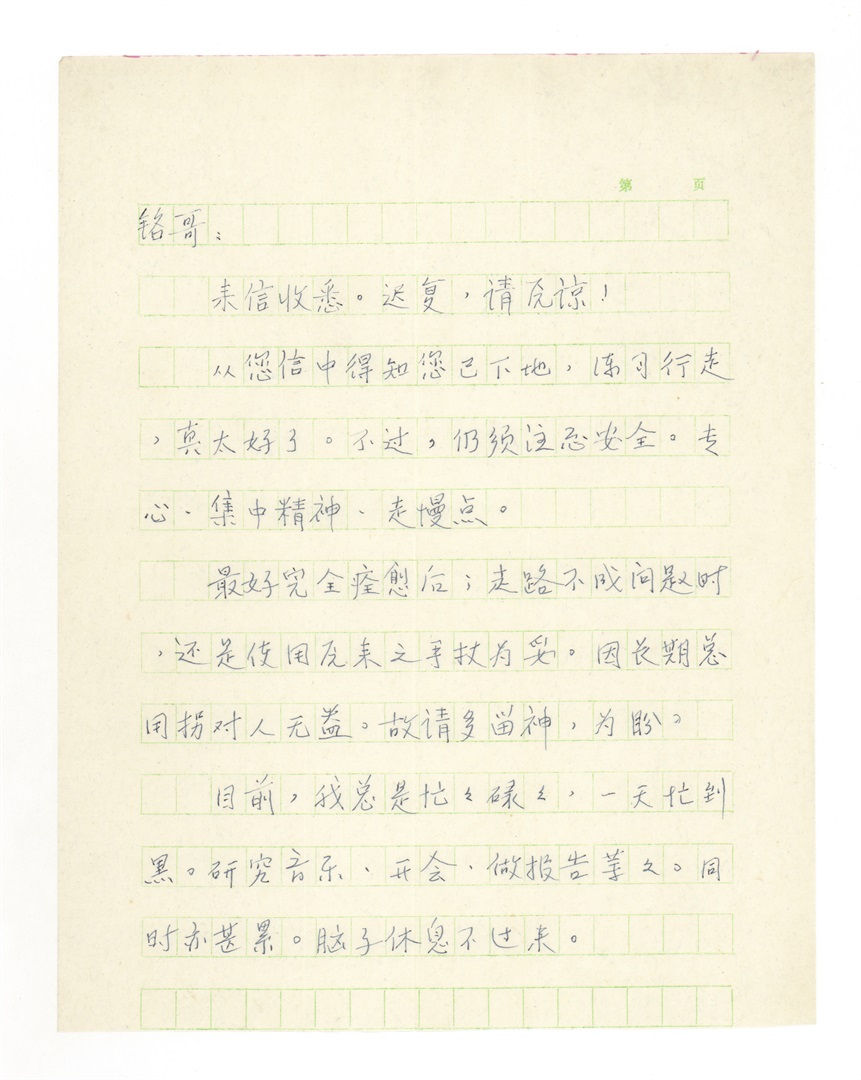 第 页
铭哥：
来信收悉。迟复，请原谅！
从您信中得知您已下地，练习行走
，真太好了。不过，仍须注意安全。专
心、集中精神、走慢点。
最好完全痊愈后；走路不成问题时
，还是使用原来之手杖为妥。因长期总
用拐对人无益。故请多留神，为盼。
目前，我总是忙々碌々，一天忙到
黑。研究音乐、开会、做报告等々。同
时亦甚累。脑子休息不过来。